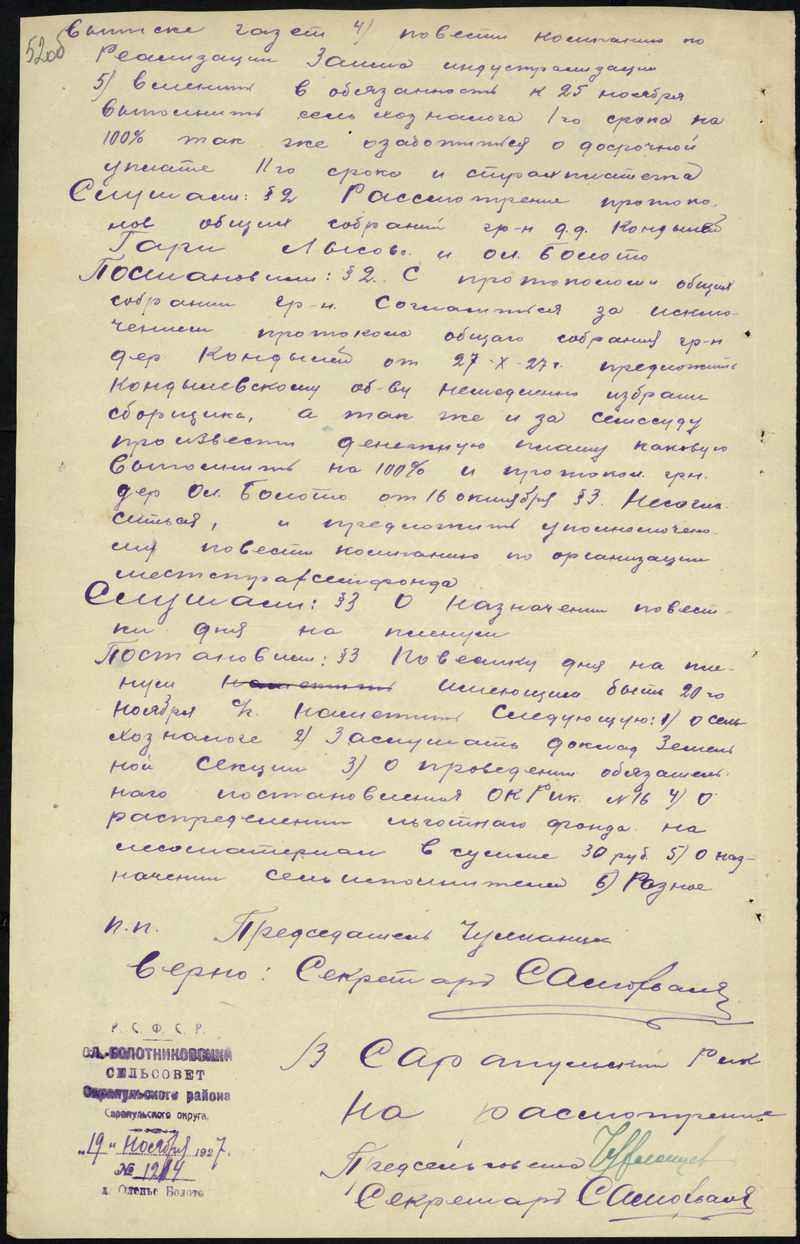 52об
выписке газет 4/ повести компанию по
Реализации Займа индустрализации
5) вменить в обязанность к 25 ноября
выполнить сельхозналога 1го срока на
100% так же озаботиться о досрочной
уплате IIго срока и страхплатежа
Слушали: §2 Рассмотрение протоко-
лов общих собраний гр-н д.д. Кондыли
Гари Лысов. и Ол. Болото
Постановили: §2. С протоколами общих
собрании гр-н. Согласиться за исклю-
чением протокола общаго собрания гр-н
дер Кондылей от 27-X-27г. предложить
Кондылевскому об-ву немедленно избрать
сборщика, а так же и за семссуду
произвести денежную плату каковую
выполнить на 100% и протокол грн.
дер Ол. Болото от 16 октября §3. Несогла-
ситься, и предложить уполномочено-
му повести компанию по организации
местстрахсемфонда
Слушали: §3 О назначении повест-
ки дня на пленум
Постановили: §3 Повестку дня на пле-
нум наметить имеющий быть 20го
Ноября с/г. наметить следующую: 1) О сель
хозналоге 2) Заслушать доклад Земель
ной секции 3) О проведении обязатель-
ного постановления ОКРик №16 4) О
распределении льготнаго фонда на
лесоматериал в сумме 30 руб. 5) О наз-
начении сельисполнителей 6) Разное
п.п. Председатель
Верно: Секретарь
Р. С. Ф. С. Р.
ОЛ.-БОЛОТНИКОВСКИЙ
СЕЛЬСОВЕТ
Сарапульского района
Сарапульского округа.
„19" Ноября 1927.
№ 1214
д. Оленье Болото
В Сарапульский Рик
На рассмотрение
Предсельсовета
Секретарь